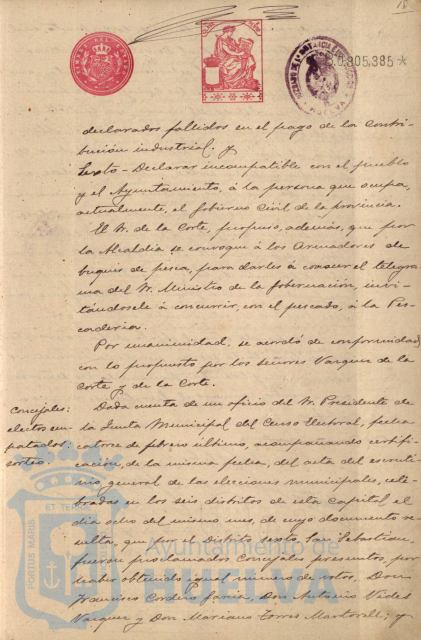 18
0.805.385*
declarados fallidos en el pago de la Contri-
bución industrial. y
Sexto - Declarar incompatible con el pueblo
y el Ayuntamiento, á la persona que ocupa,
actualmente, el Gobierno Civil de la provincia.
El Sr. de la Corte, propuso, además, que por
la Alcaldía se convoque á los Armadores de
buques de pesca, para darles á conocer el telegra-
ma del Sr. Ministro de la Gobernación, invi-
tándosele á concurrir, con el pescado, á la Pes-
cadería.
Por unanimidad, se acordó de conformidad
con lo propuesto por los señores Vazquez de la
Corte y de la Corte.
Concejales:
electos em-
patados:
sorteo.
Dada cuenta de un oficio del Sr. Presidente de
la Junta Municipal del Censo Electoral, fecha
catorce de febrero último, acompañando certifi-
cación, de la misma fecha, del acta del escruti-
nio general de las elecciones municipales, cele-
bradas en los seis distritos de esta Capital el
día ocho del mismo mes, de cuyo documento re-
sulta, que por el Distrito sexto, San Sebastian,
fueron proclamados Concejales presuntos, por
haber obtenido igual número de votos, Don
Francisco Cordero García, Don Antonio Vides
Vazquez y Don Mariano Torres Martorell; y
PORTUS MARIS
ET TERRAE
Ayuntamiento de
HUELVA